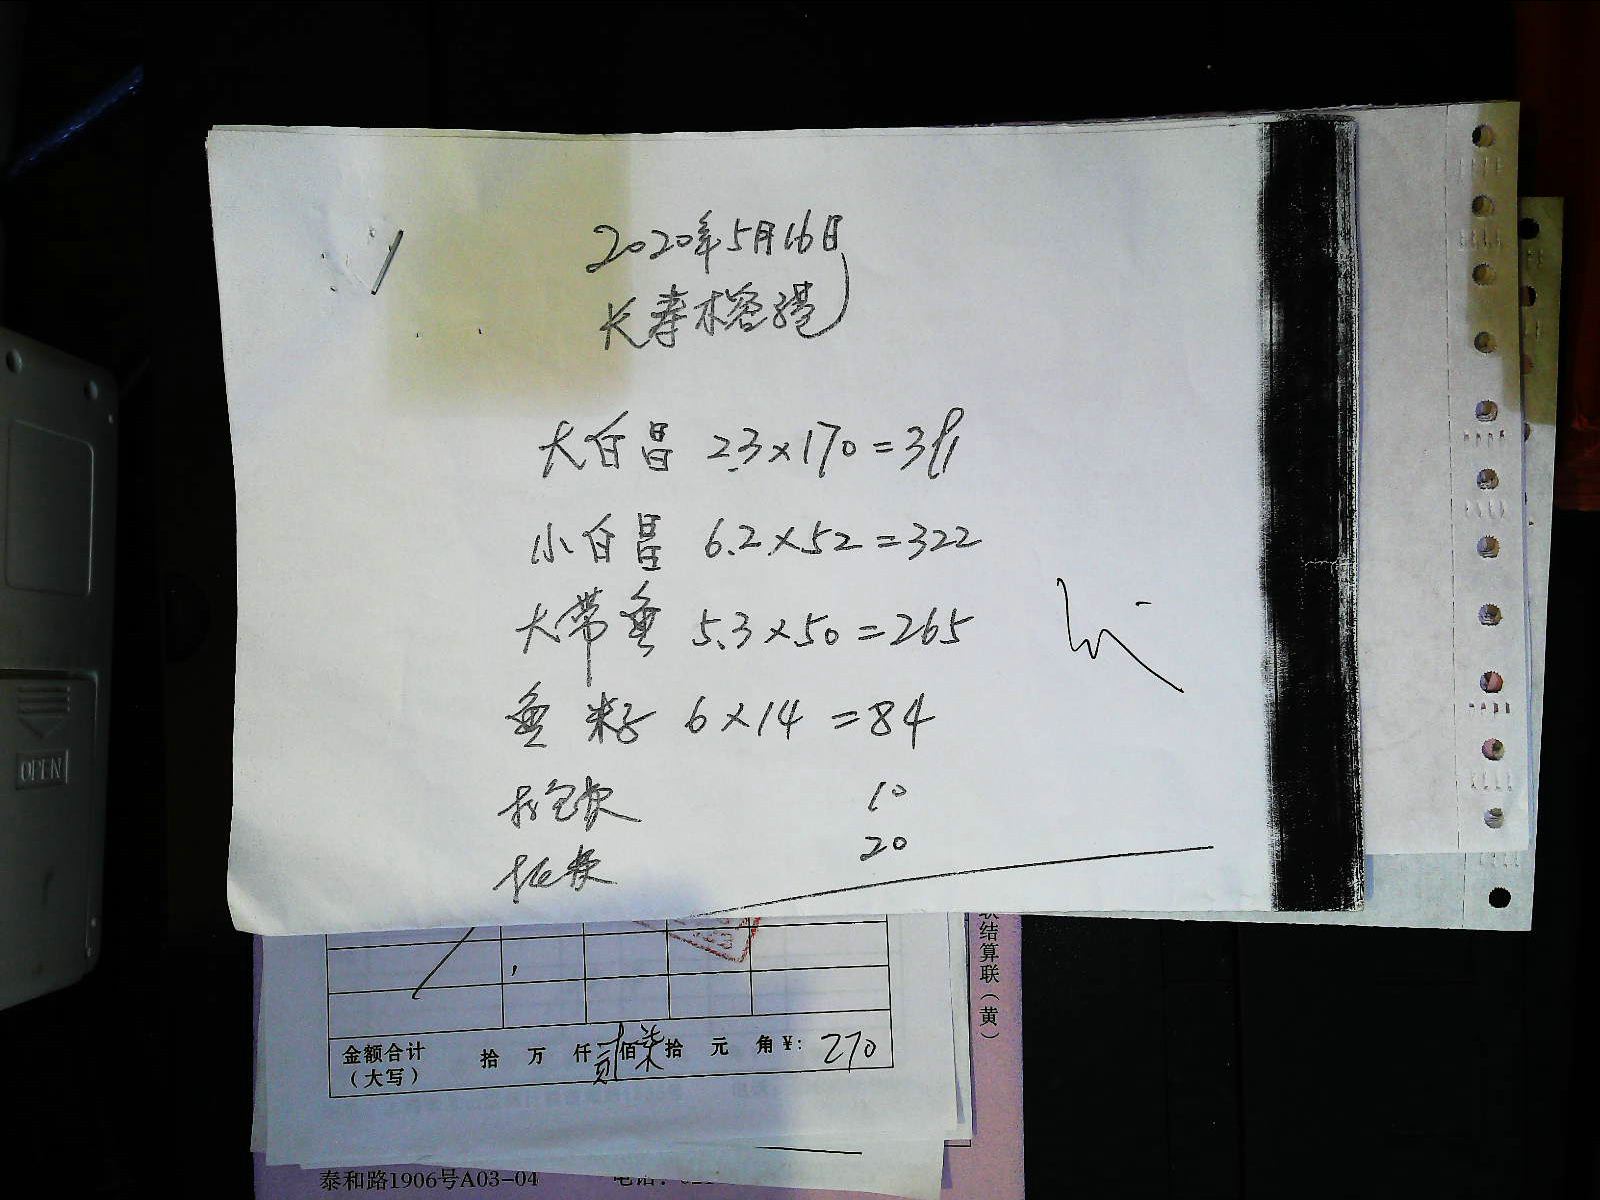 2020年5月16日
长寿榕港
大白昌 2.3×170=391
小白昌 6.2×52=322
大带鱼 5.3×50=265
鱼籽 6×14=84
打包费 10
20
金额合计
（大写）
拾 万 仟 贰 佰 柒 拾 元 角 ¥: 270
结算联（黄）
泰和路1906号A03-04
电话：021
OPEN